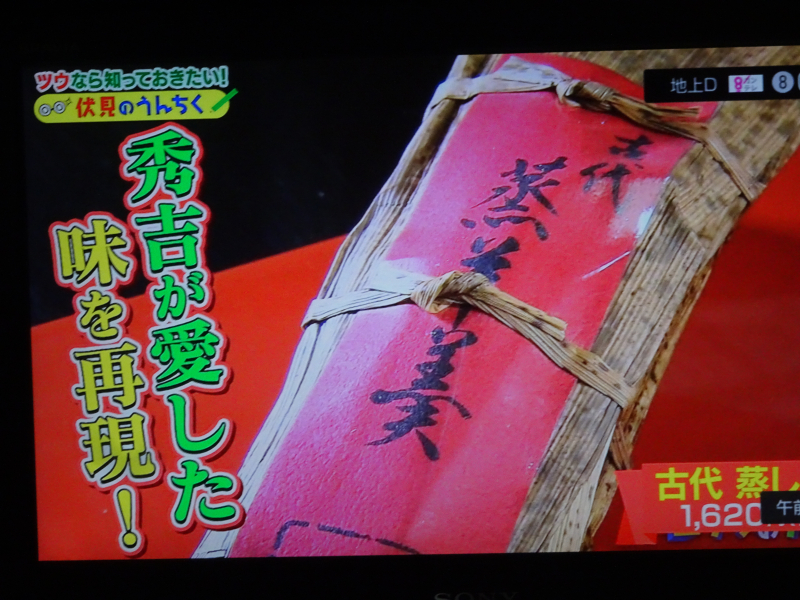 ツウなら知っておきたい!
伏見のうんちく
秀吉が愛した
味を再現!
古代
蒸羊羹
地上D
8
古代 蒸し
1,620
午前
SONY